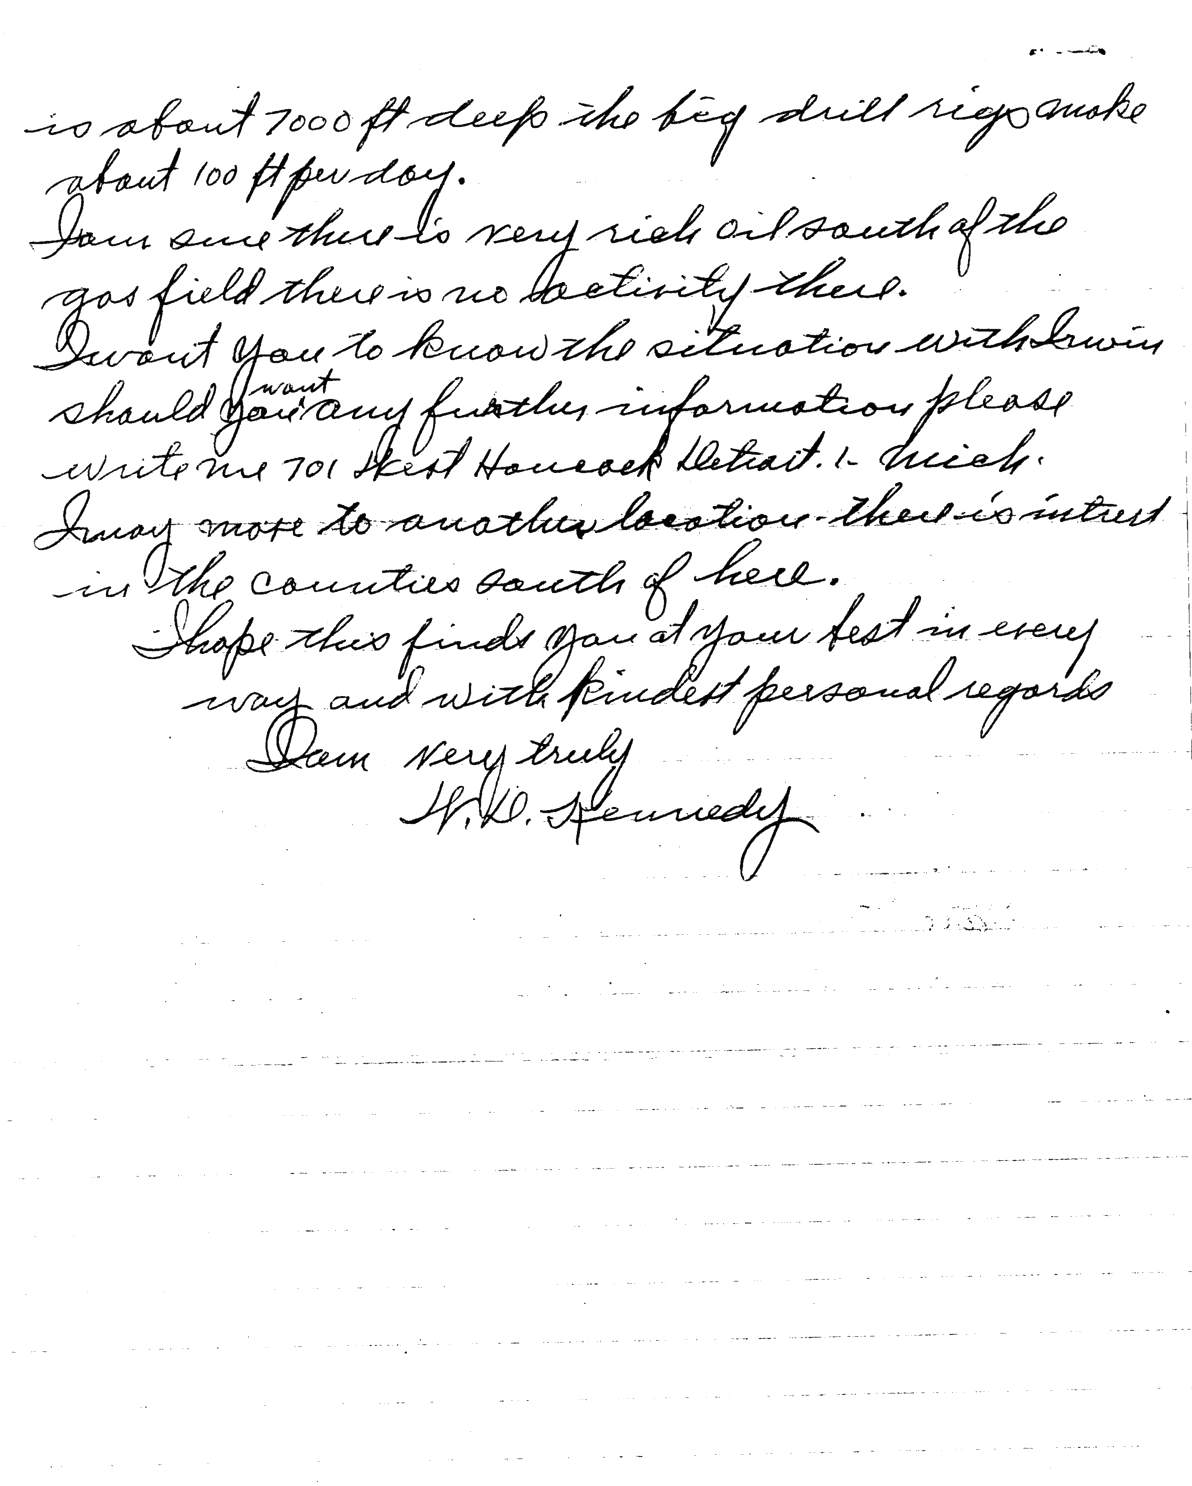 is about 7000 ft deep the big drill rigs make
about 100 ft per day.
I am sure there is very rich oil south of the
gas field there is no activity there.
I want you to know the situation with Irwin
should you want any further information please
write me 701 West Hancock Detroit. 1- Mich.
I may move to another location - there is intrest
in the counties south of here.
I hope this finds you at your best in every
way and with kindest personal regards
I am very truly
W. D. Kennedy